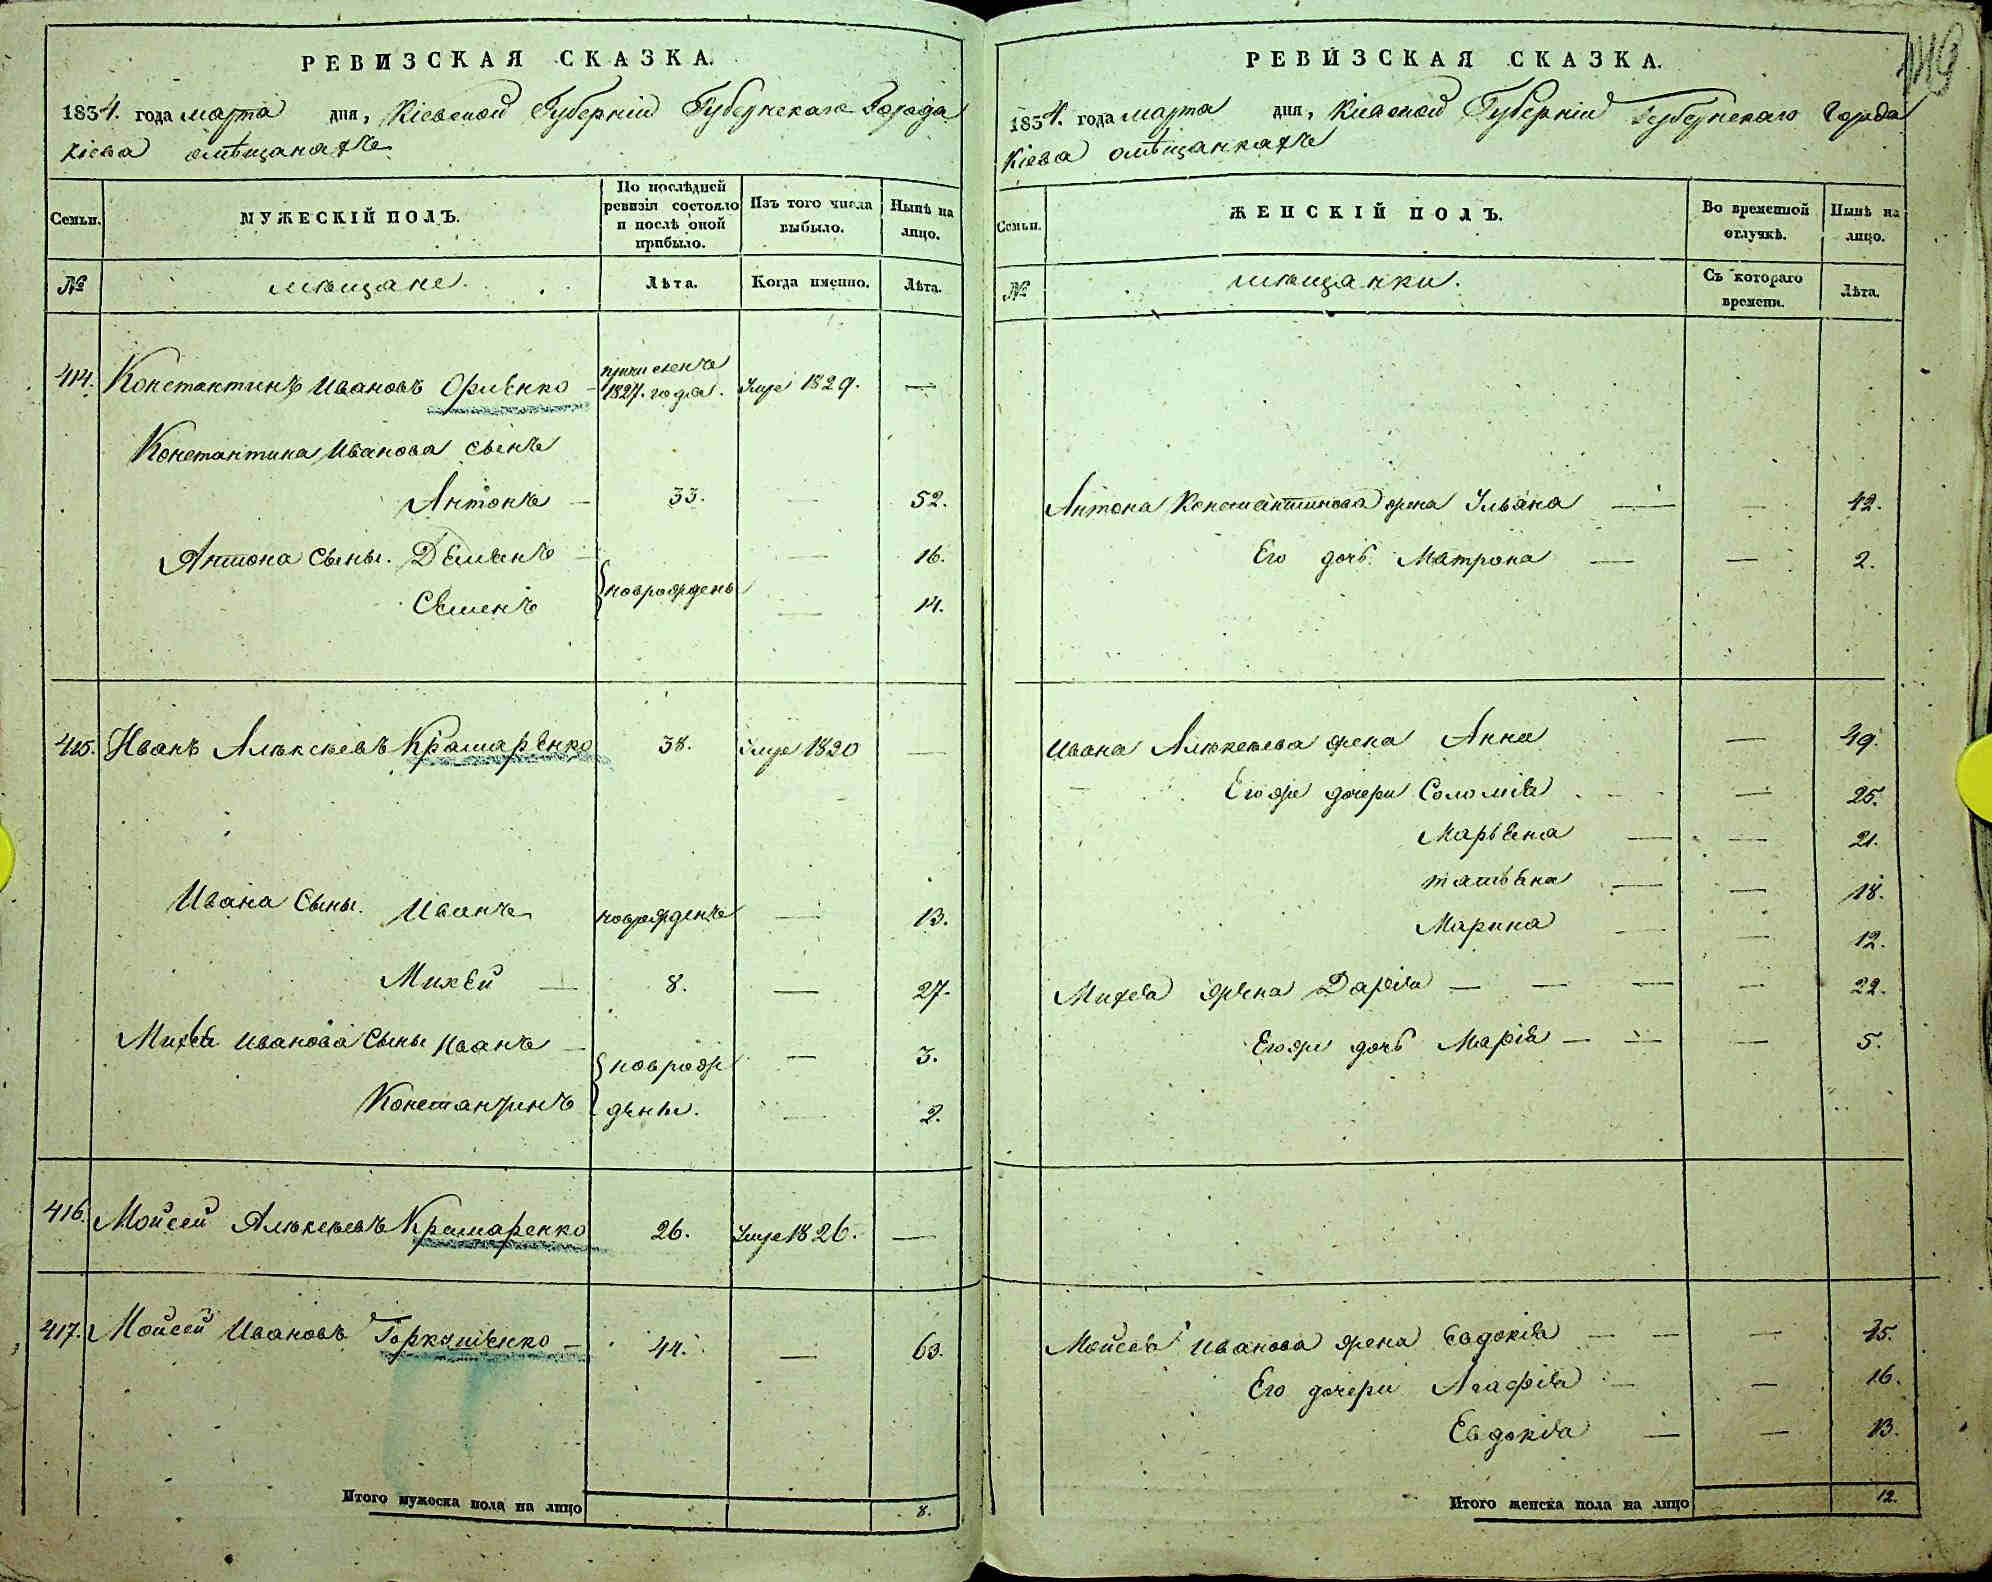 РЕВИЗСКАЯ СКАЗКА.
1834. года марта дня, Кіевской Губерніи Губернскаго Города
Кіева омѣщанахъ
Семьи.
МУЖЕСКІЙ ПОЛЪ.
По послѣдней ревизіи состояло и послѣ оной прибыло.
Изъ того числа выбыло.
Нынѣ на лицо.
№
мѣщане.
Лѣта.
Когда именно.
Лѣта.
414. Константинъ Ивановъ Орленко – причисленъ 1827. года. Умре 1829. —
Константина Иванова сынъ
Антонъ — 33. — 52.
Антона Сыны. Демьянъ — — 16.
Семенъ новрожденъ — 14.
415. Иванъ Алѣксѣевъ Крамаренко 38. Умре 1830 —
Ивана Сыны. Иванъ новрожденъ — 13.
Михей — 8. — 27.
Михея Иванова Сыны Иванъ — новрож — 3.
Константинъ дены. — 2.
416. Мойсей Алѣксѣевъ Крамаренко 26. Умре 1826. —
417. Мойсей Ивановъ — 44. — 63.
Итого мужеска пола на лицо 8.
119
РЕВИЗСКАЯ СКАЗКА.
1834. года марта дня, Кіевской Губерніи Губернскаго Города
Кіева омѣщанкахъ
Семьи.
ЖЕНСКІЙ ПОЛЪ.
Во временной отлучкѣ.
Нынѣ на лицо.
№
мѣщанки.
Съ котораго времени.
Лѣта.
Антона Константинова жена Ульяна — — 42.
Его дочь Матрона — — 2.
Ивана Алѣксѣева жена Анна — 49.
Егожъ дочери Соломія — 25.
Марьяна — — 21.
татьяна — — 18.
Марина — — 12.
Михея жена Дарія — — — — 22.
Егоже дочь Марія — — — 5.
Мойсея Иванова жена Евдокія — — — 45.
Его дочери Агафія — — 16.
Евдокія — — 13.
Итого женска пола на лицо 12.